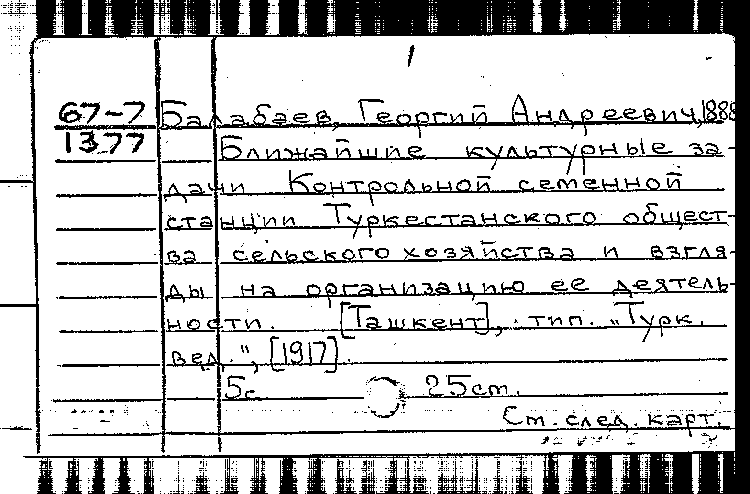 1
67-7 Балабаев, Георгий Андреевич, 1888
1377 Ближайшие культурные за-
дачи Контрольной семенной
станции Туркестанского общест-
ва сельского хозяйства и взгля-
ды на организацию ее деятель-
ности. [Ташкент], тип. „Турк.
вед.", [1917].
5с. 25ст.
См. след. карт.